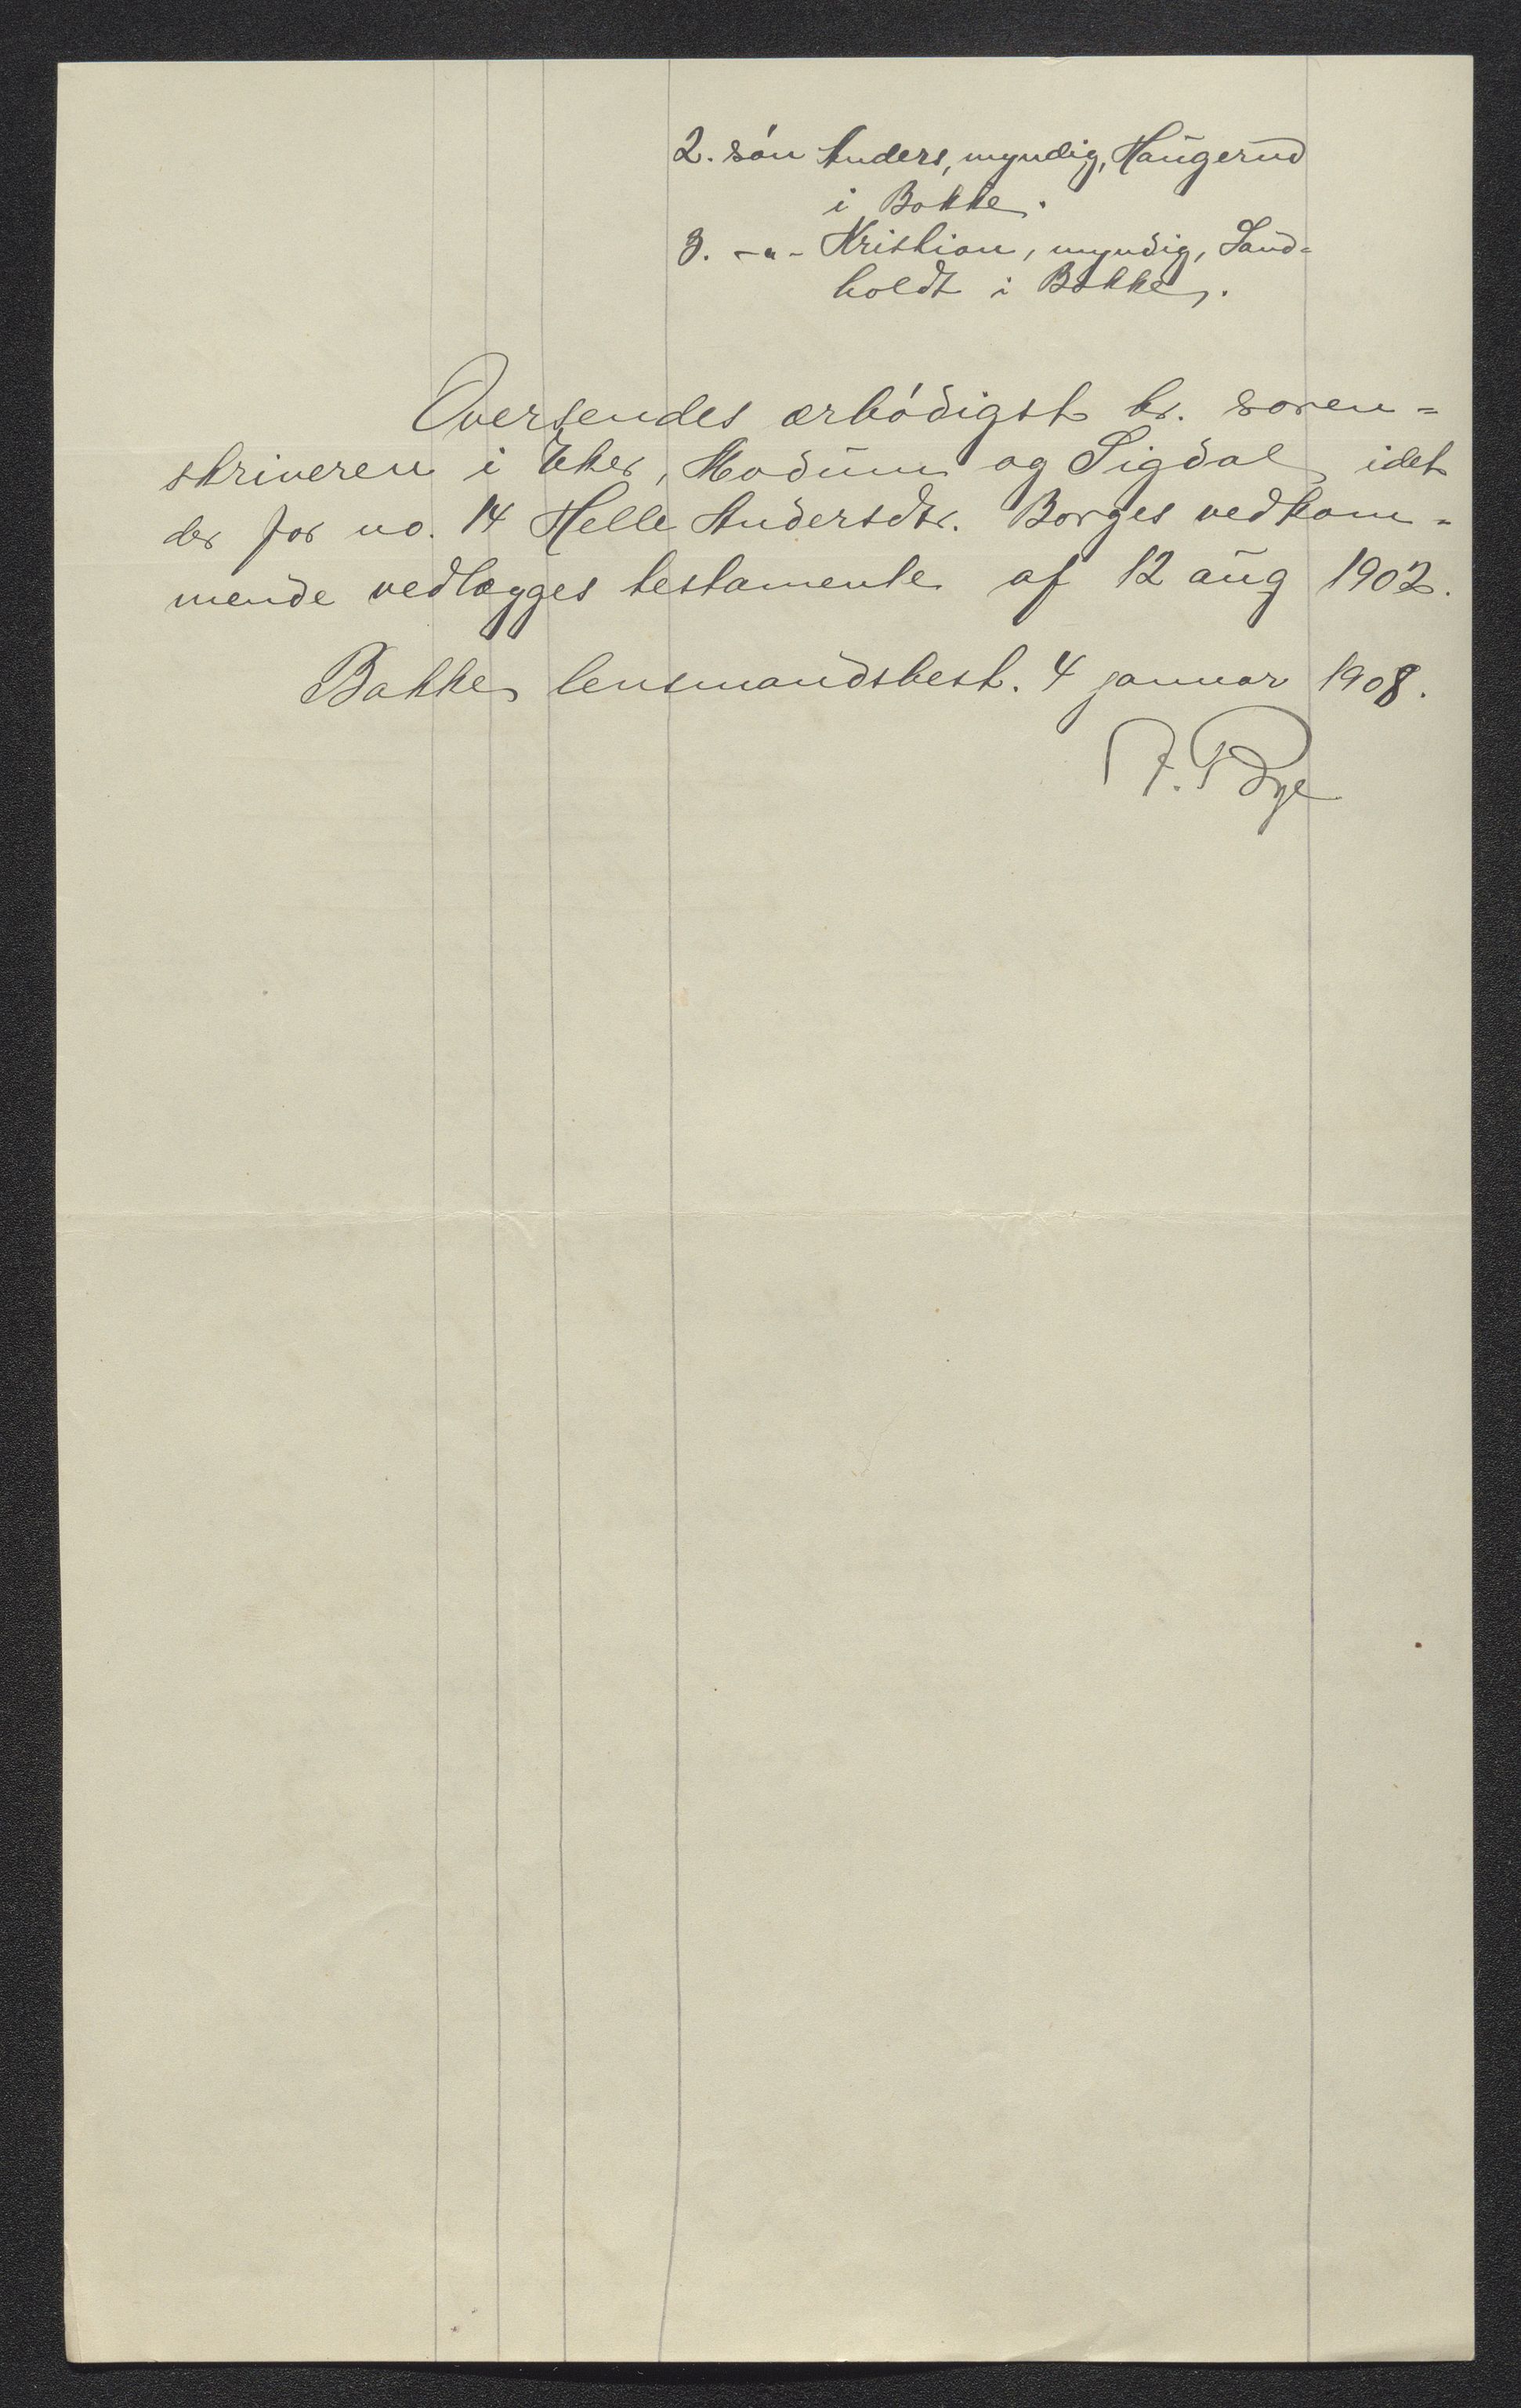 2. són Anders, myndig, Haugerud
i Bakke.
3. -"- Kristian, myndig, Sand=
holdt i Bakke.
Oversendes ærbódigst hr. soren=
skriveren i Eker, Modum og Sigdal, idet
der for no. 14 Helle Andersdtr. Borges vedkom=
mende vedlægges testamente af 12 aug 1902.
Bakke lensmandsbest. 4 januar 1908.
Bye